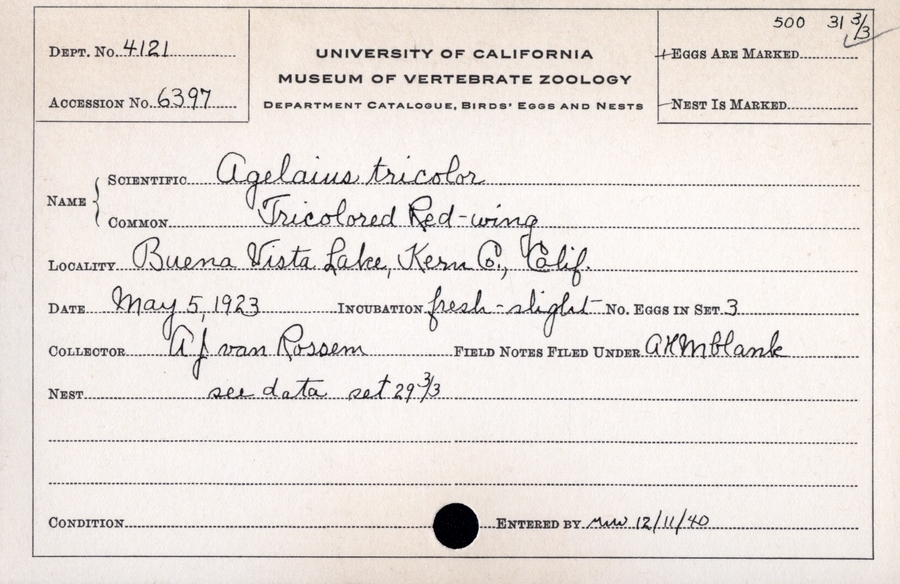 500 31 3/3
DEPT. No. 4121
ACCESSION No. 6397
UNIVERSITY OF CALIFORNIA
MUSEUM OF VERTEBRATE ZOOLOGY
DEPARTMENT CATALOGUE, BIRDS' EGGS AND NESTS
EGGS ARE MARKED
NEST IS MARKED
NAME
SCIENTIFIC Agelaius tricolor
COMMON Tricolored Red-wing
LOCALITY Buena Vista Lake, Kern Co., Calif.
DATE May 5, 1923 INCUBATION fresh-slight No. EGGS IN SET 3
COLLECTOR A J van Rossem FIELD NOTES FILED UNDER AHM blank
NEST see data set 29 3/3
CONDITION ENTERED BY 12/11/40